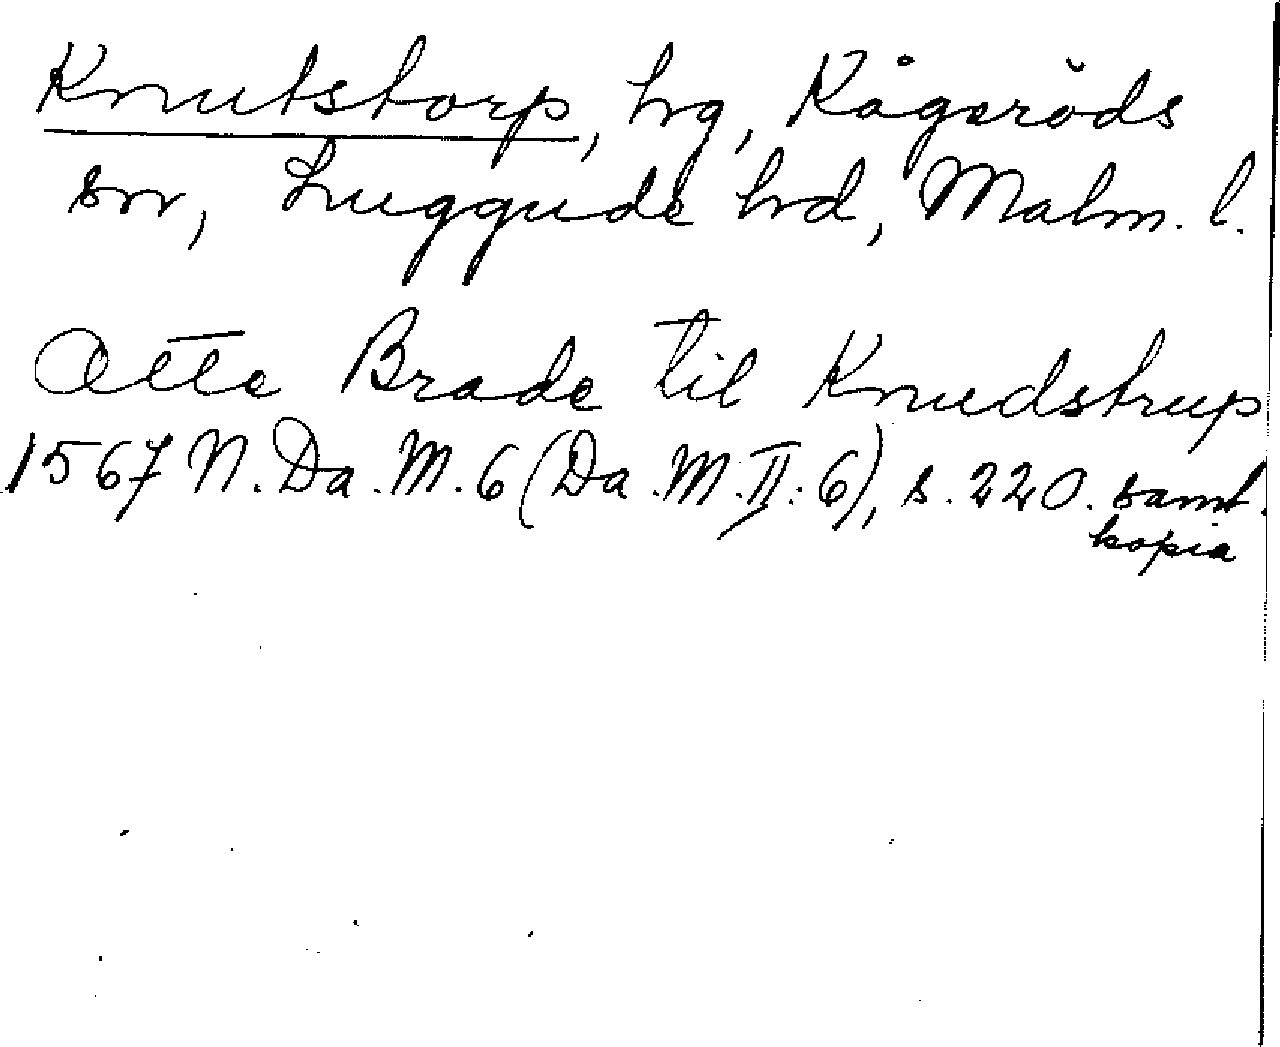 Knutstorp, hg, Kågeröds
sn, Luggude hd, Malm. l.
Otte Brade til Knudstrup
1567 N. Da. M. 6 (Da. M. II. 6), s. 220. samt.
kopia